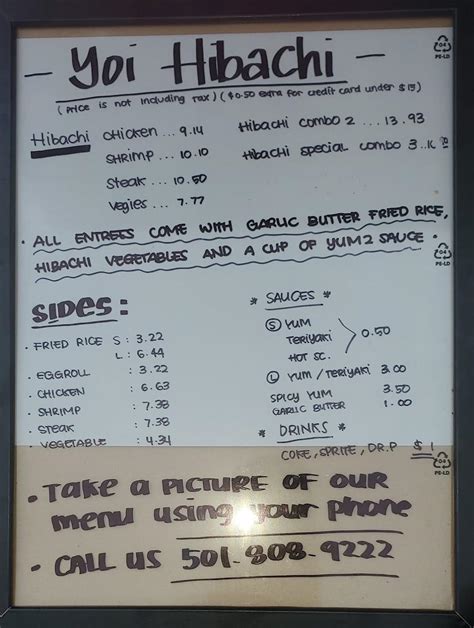 - Yoi Hibachi -
(Price is not including tax) ($0.50 extra for credit card under $15)
Hibachi CHicken ... 9.14
SHRimp ... 10.10
Steak ... 10.50
Vegies ... 7.77
Hibachi combo 2 ... 13.93
Hibachi special combo 3..
• ALL ENTREES COME WITH GARLIC BUTTER FRIED RICE,
HIBACHI VEGETABLES AND A CUP OF YUM2 SAUCE •
SIDES:
• FRIED RICE S : 3.22
L : 6.44
• EGGROLL : 3.22
• CHICKEN : 6.63
• SHRIMP : 7.38
• STEAK : 7.38
• VEGETABLE : 4.34
* SAUCES *
(S) YUM
TERIYAKI
HOT SC.
0.50
(L) YUM / TERIYAKI 3.00
SPICY YUM 3.50
GARLIC BUTTER 1.00
* DRINKS *
COKE, SPRITE, DR.P $1
• TAKE A PICTURE OF OUR
menu using your phone
• CALL US 501-808-9222
04
PE-LD
04
PE-LD
04
PE-LD